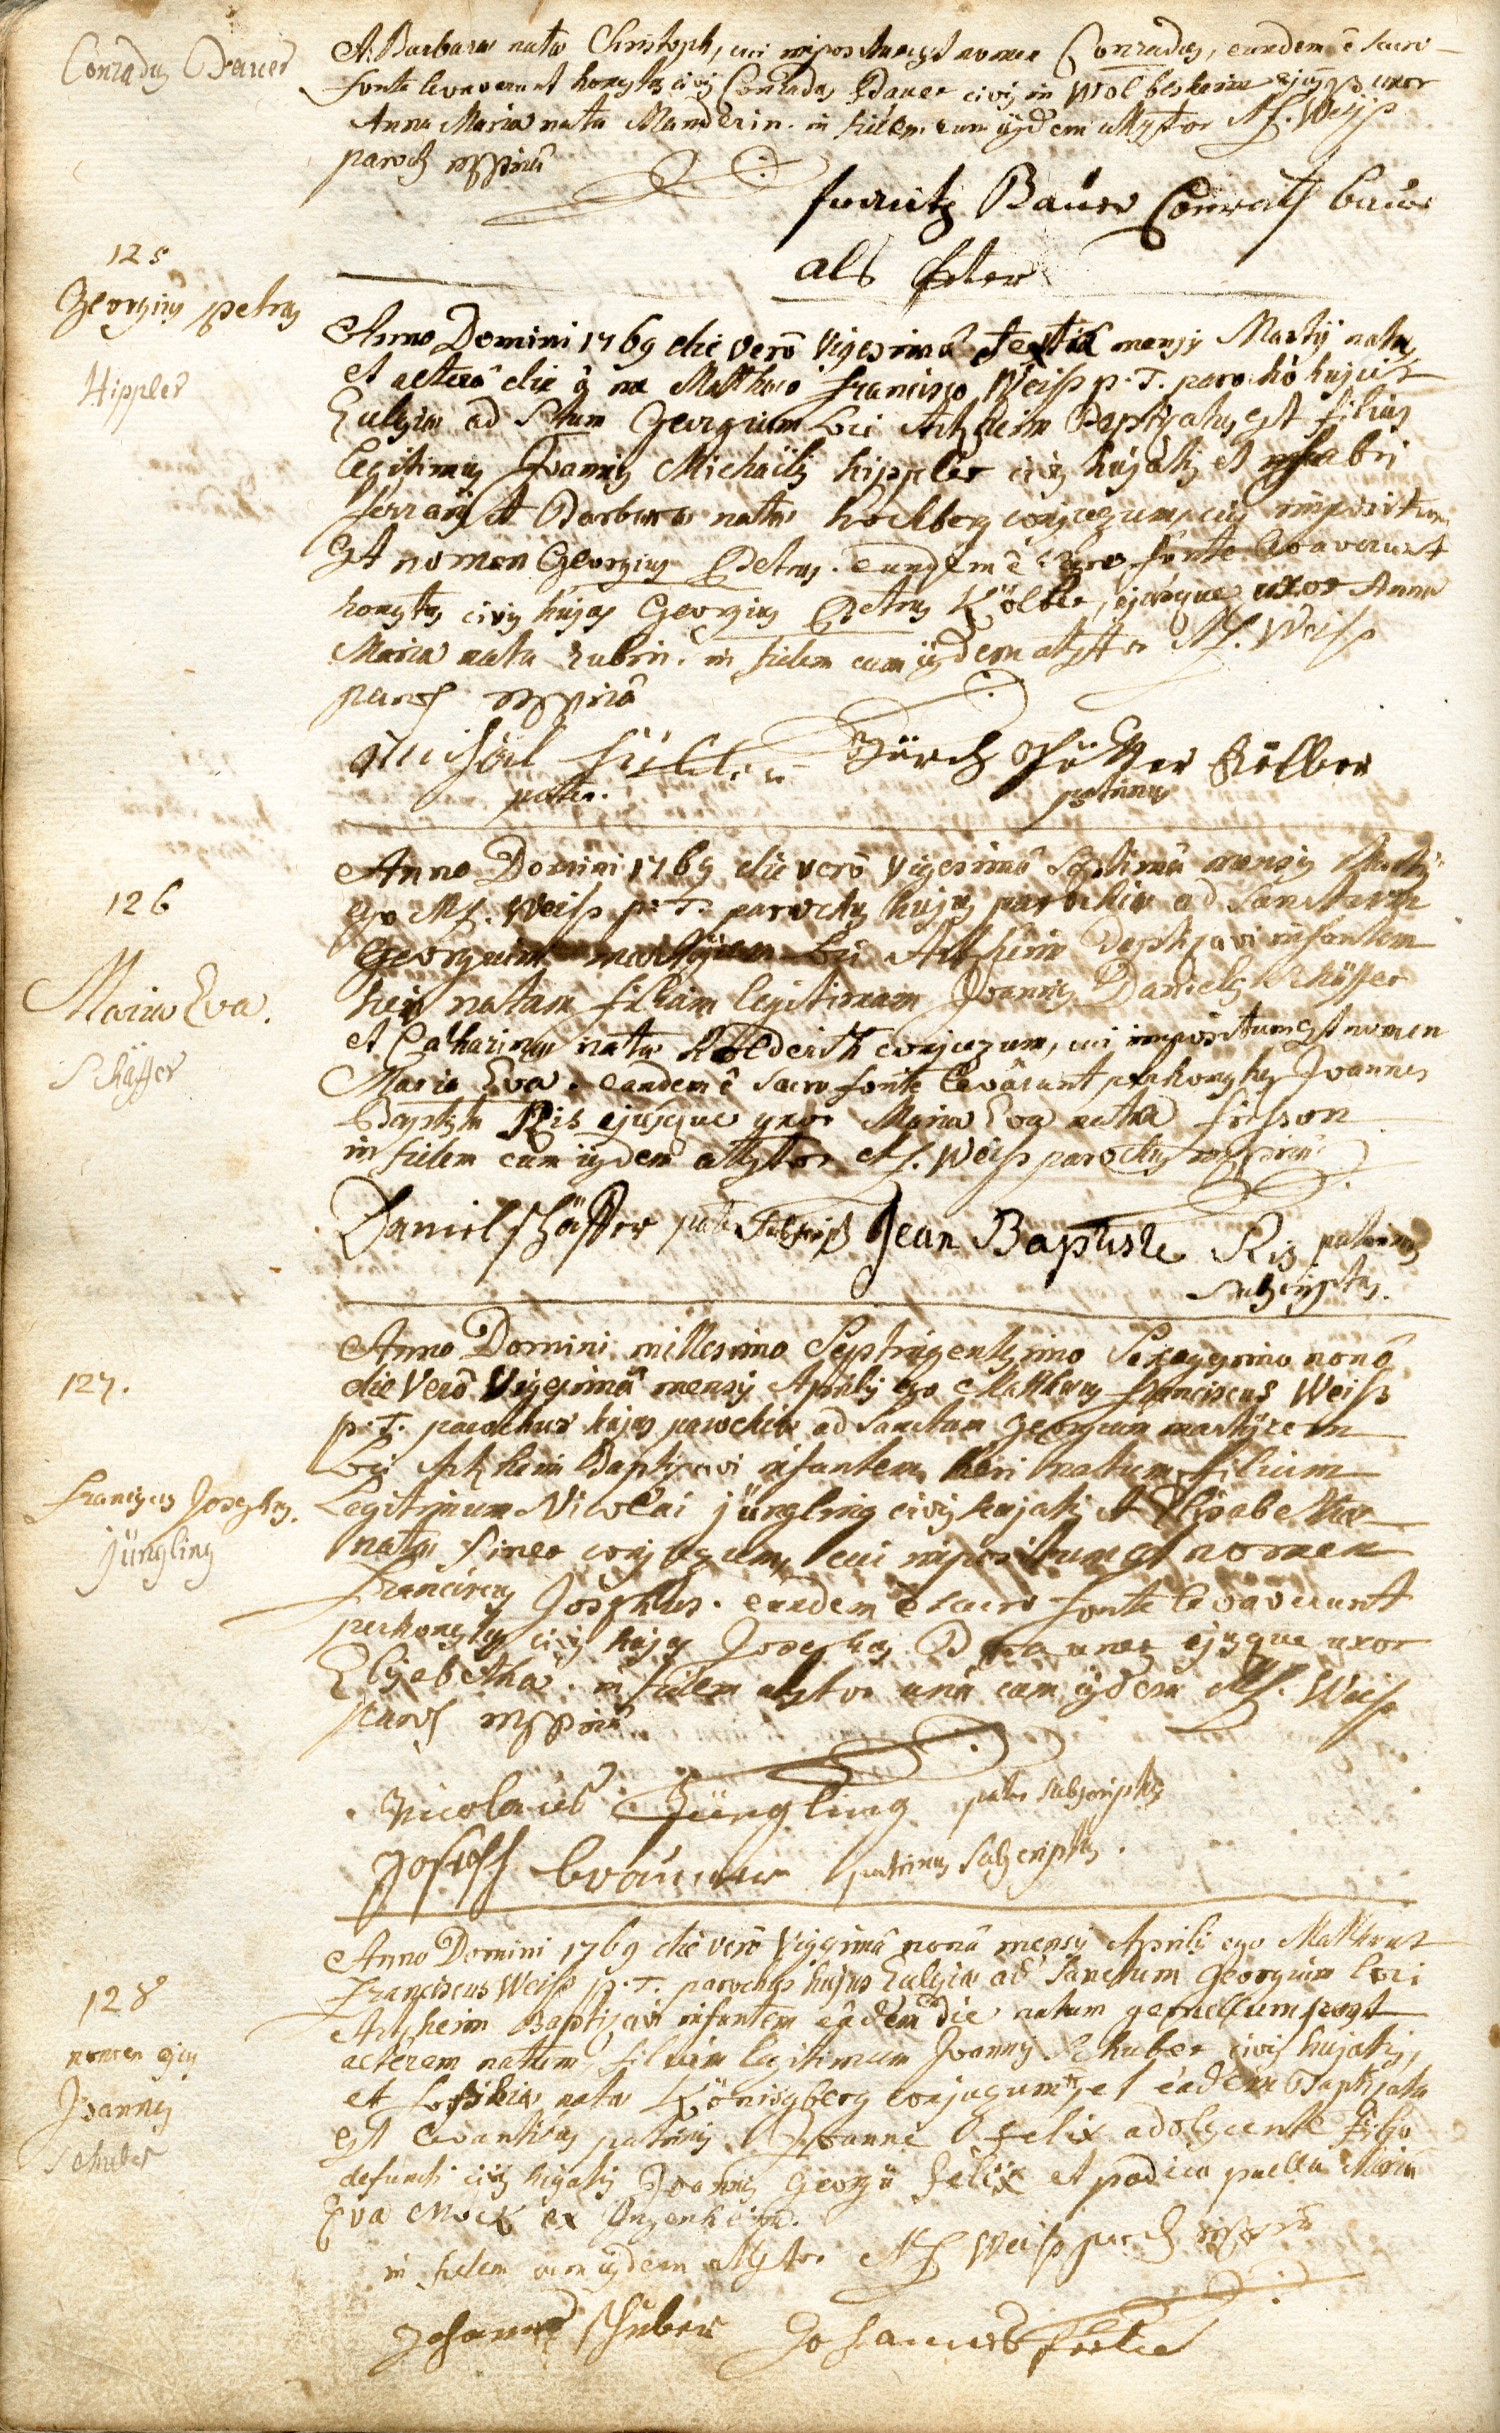 Conradus Bauer
et Barbara nata Christoph, cui impositum est nomen Conradus, eundem è sacro
fonte levaverunt honestus civis Conradus Bauer civis in Wolbesheim ejusque uxor
Anna Maria nata Manderin. in fidem cum ijsdem attestor M.f. Weiss
paroch mppriâ
Bauer Conrath bauer
als fater
125
Georgius petrus
Hippler
Anno Domini 1769 die verô vigesimâ sextâ mensis Martij natus,
et alterâ die â me Matthaeo francisco Weiss p.T. parochô hujus
Eclesiae ad Stum Georgium loci Artzheim Baptisatus est filius
legitimus Joannis Michaëlis hippler civis hujatis et fabri
ferrarij et Barbara nata hochberg conjugum, cui impositum
est nomen Georgius Petrus. eundem ê sacro fonte levaverunt
honestus civis hujas Georgius Petrus Kölber, ejusque uxor Anna
Maria nata Zubrin. in fidem cum ijsdem attestor M.f. Weiss
paroch mppriâ
Michäel hiebler Jörch Pötter Kölber
pater. patrinus
126
Maria Eva.
Schäffer
Anno Domini 1769 die verô vigesimâ septimâ mensis Martij
ego M.f. Weiss p.T. parochus hujus parochiae ad Sanctum
Georgium martyrem loci Artzheim Baptisavi infantem
heri natam filiam legitimam Joannis Danielis Schäffer
et Catharina nata Holderith conjugum, cui impositum est nomen
Maria Eva. eandem ê sacro fonte levârunt perhonestus Joannes
Baptista Ris ejusque uxor Maria Eva nata frisson
in fidem cum ijsdem attestor M.f. Weiss parochus mppriâ
Daniel schäffer pater subscript Jean Baptiste Ris patrinus
subscriptus.
127.
Franciscus Josephus.
Jüngling
Anno Domini millesimo Septingentesimo Sexagesimo nonô
die verô vigesimâ mensis Aprilis ego Matthaeus franciscus Weiss
p.T. parochus hujus parochiae ad Sanctum Georgium martÿrem
loci Artzheim Baptisavi infantem heri natum filium
Legitimum Nicolai jüngling civis hujatis et Elisabetha
nata finer conjugum, cui impositum est nomen
Franciscus Josephus. eundem ê sacro fonte levaverunt
perhonestus civis hujas Josephus Braunner ejusque uxor
Elisabetha. in fidem attestor unâ cum ijsdem M.f. Weiss
paroch mppriâ
Nicolaus Jüngling pater subscriptus
Joseph braunner patrinus subscriptus.
128
nomen ejus
Joannes
Schuber
Anno Domini 1769 die verô vigesimâ nonâ mensis Aprilis ego Matthaeus
Franciscus Weiss p.T. parochus hujus Eclesiae ad Sanctum Georgium loci
Artzheim Baptisavi infantem eâdem die natum gemellum post
alteram natum, filium legitimum Joannis Schuber civis hujatis,
et Sophia nata Königsberg conjugum, et eâdem Baptisata
est levantibus patrinis Joanne Felix adolescente filio
defuncti civis hujatis Joannis Georgii Felix et pudica puella Maria
Eva Mock ex Inzenheim.
in fidem cum ijsdem attestor M.f. Weiss paroch mppriâ
Johannes schuber Johannes Felix